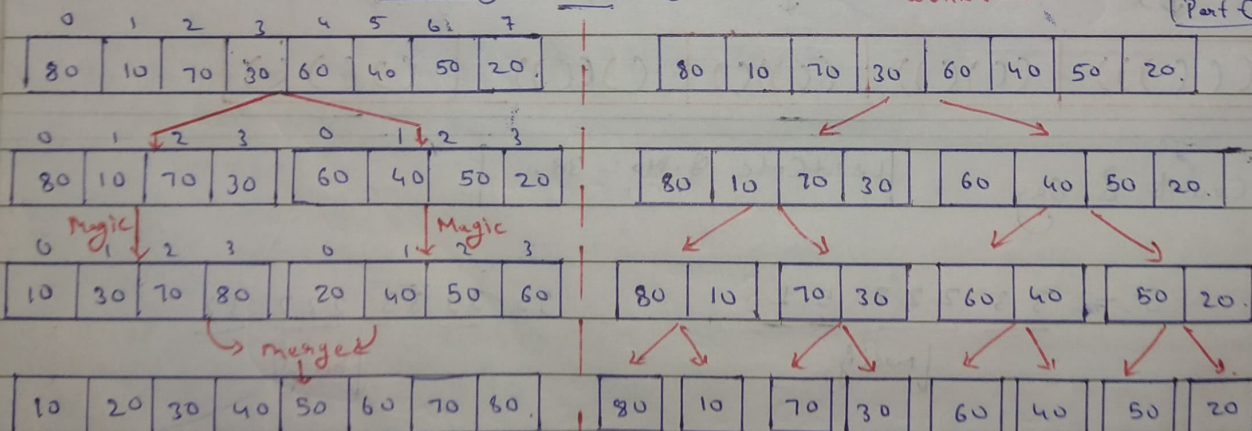 0 1 2 3 4 5 6 7
80 10 70 30 60 40 50 20.
0 1 2 3 0 1 2 3
80 10 70 30 60 40 50 20
Magic Magic
0 1 2 3 0 1 2 3
10 30 70 80 20 40 50 60
merge
10 20 30 40 50 60 70 80.
(Part
80 10 70 30 60 40 50 20.
80 10 70 30 60 40 50 20.
80 10 70 30 60 40 50 20.
80 10 70 30 60 40 50 20